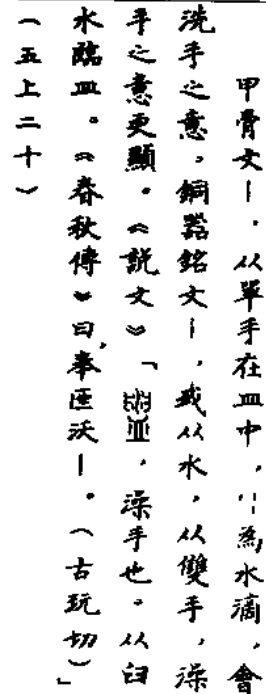 甲骨文｜，从單手在皿中，∴為水滴，會
洗手之意，銅器銘文｜，或从水，从雙手，澡
手之意更顯。《說文》「盥，澡手也。从臼
水臨皿。《春秋傳》曰，奉匜沃｜。（古玩切）」
（五上二十）